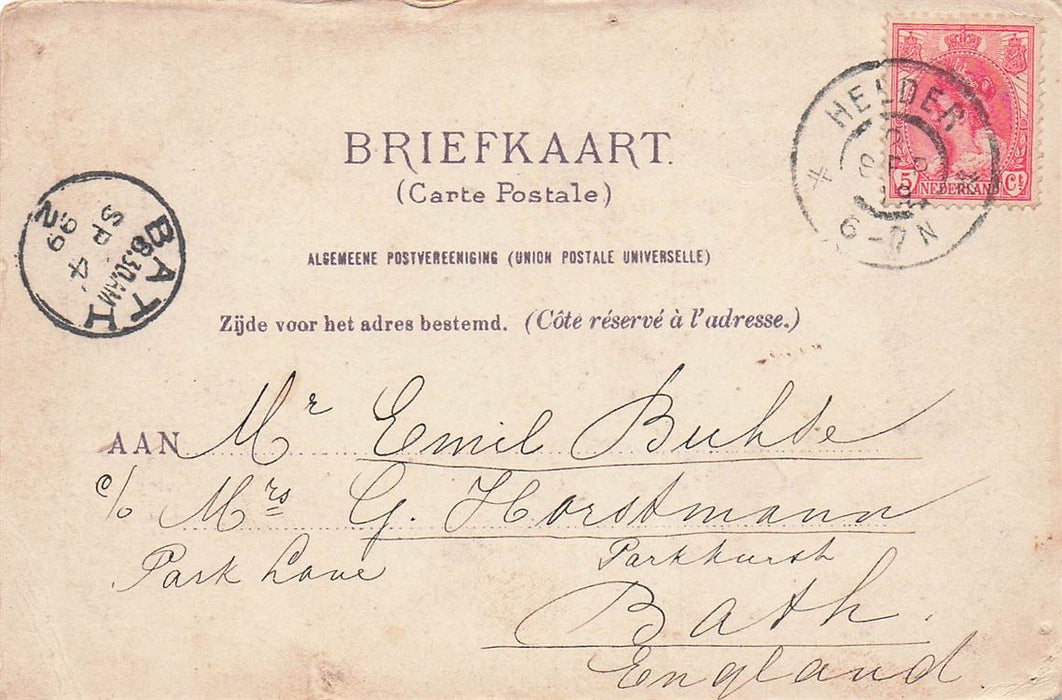 5 NEDERLAND Ct
HELDER
SEP
6-7N
BRIEFKAART.
(Carte Postale)
BATH
8.30.AM
SP 4
99
2
ALGEMEENE POSTVEREENIGING (UNION POSTALE UNIVERSELLE)
Zijde voor het adres bestemd. (Côte réservé à l'adresse.)
AAN Mr Emil Buhde
c/o Mrs G. Horstmann
Park Lane Parkhurst
Bath.
England